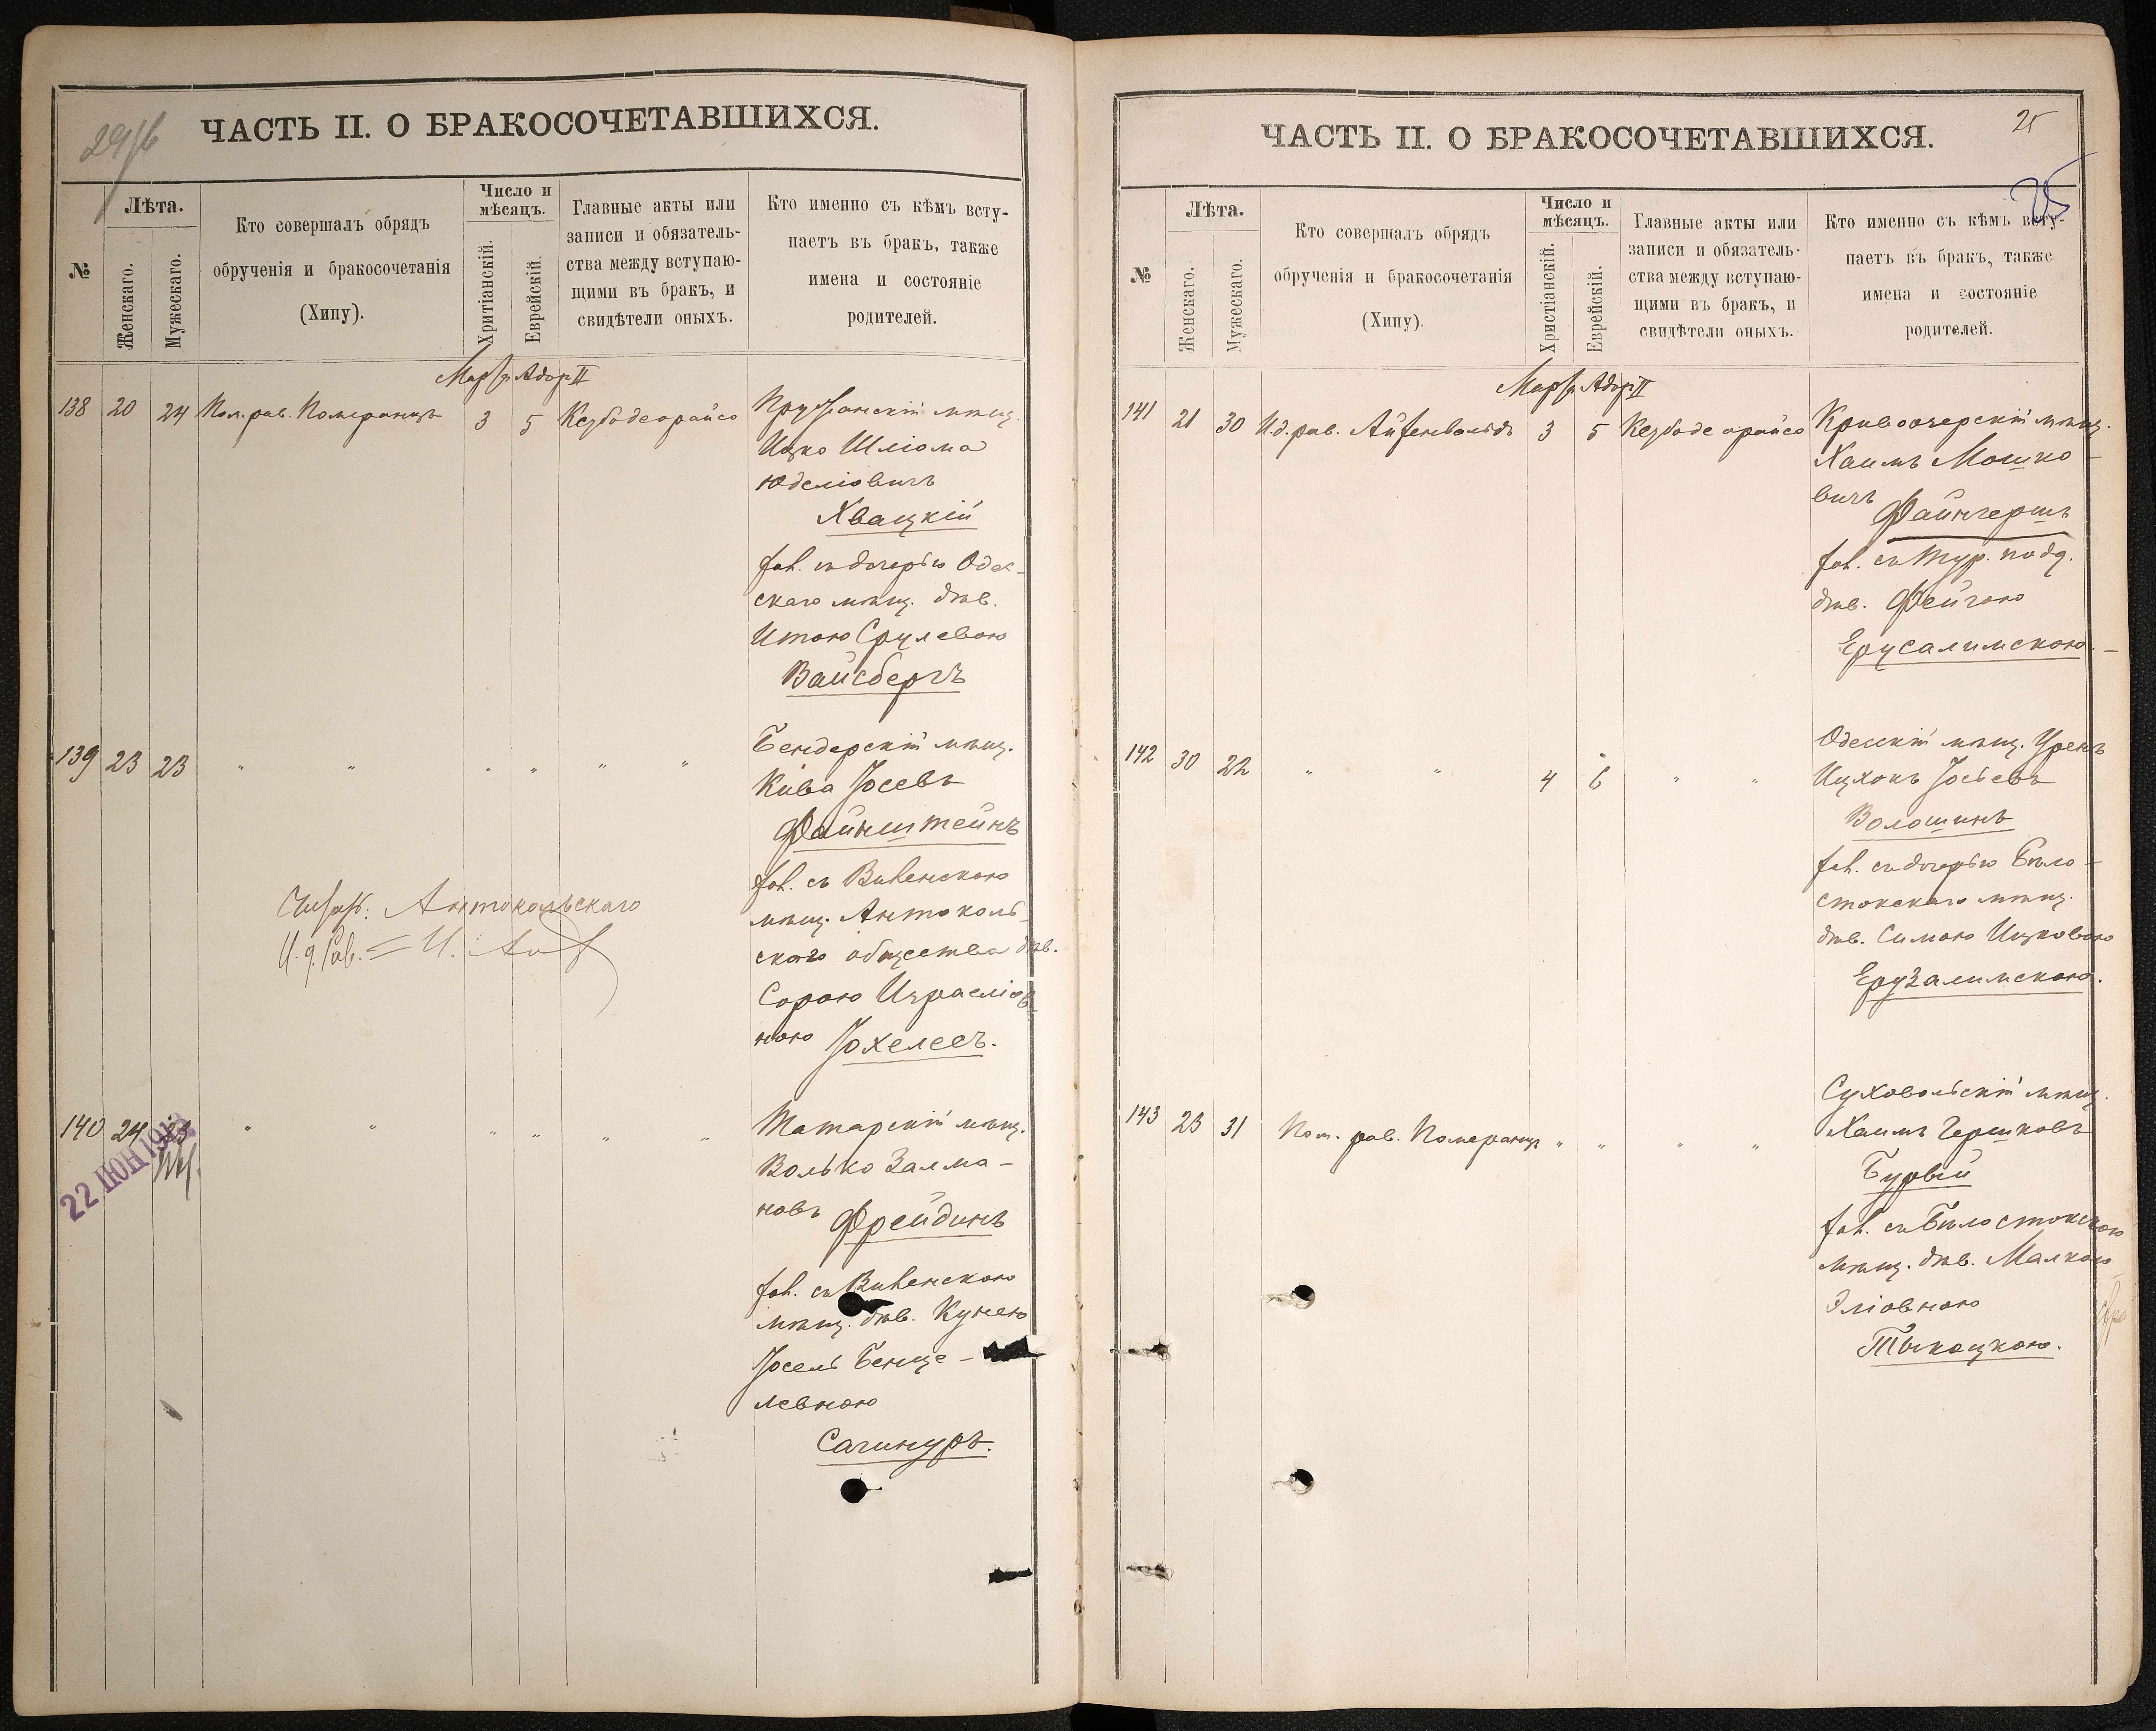 ЧАСТЬ II. О БРАКОСОЧЕТАВШИХСЯ.
№
Лѣта.
Женскаго.
Мужескаго.
Кто совершалъ обрядъ
обрученія и бракосочетанія
(Хипу).
Число и
мѣсяцъ.
Хритіанскій.
Еврейскій.
Главные акты или
записи и обязатель-
ства между вступаю-
щими въ бракъ, и
свидѣтели оныхъ.
Кто именно съ кѣмъ всту-
паетъ въ бракъ, также
имена и состояніе
родителей.
Мартъ Адоръ II
138 20 24 Пом. рав. Померанцъ 3 5 Кезубо деорайсо
Пружанскій мѣщ.
Ицко Шліома
Юделіовичъ
Хвацкій
съ дочерью Одес-
скаго мѣщ. дѣв.
Итою Срулевою
Вайсбергъ
139 23 23 " " " " " "
Бендерскій мѣщ.
Кива Іосевъ
Файнштейнъ
съ Виленскою
мѣщ. Антоколь-
скаго общества дѣв.
Сорою Израеліов-
ною Іохелесъ.
Антокольскаго
И. д. Рав.
140 24 23 " " " " " "
22 ІЮН 1913
Татарскій мѣщ.
Волько Залма-
новъ Фрейдинъ
съ Виленскою
мѣщ. дѣв. Кунею
Іосель Бенце-
левною
Сагинуръ.
ЧАСТЬ II. О БРАКОСОЧЕТАВШИХСЯ.
25
25
№
Лѣта.
Женскаго.
Мужескаго.
Кто совершалъ обрядъ
обрученія и бракосочетанія
(Хипу).
Число и
мѣсяцъ.
Христіанскій.
Еврейскій.
Главные акты или
записи и обязатель-
ства между вступаю-
щими въ бракъ, и
свидѣтели оныхъ.
Кто именно съ кѣмъ всту-
паетъ въ бракъ, также
имена и состояніе
родителей.
Мартъ Адоръ II
141 21 30 И. д. рав. Айзенвальдъ 3 5 Кезубо де орайсо
Кривоозерскій мѣщ.
Хаимъ Мошко-
вичъ Файнгершъ
съ Тур. подд.
дѣв. Фейгою
Ерусалимскою.
142 30 22 " " 4 6 " "
Одесскій мѣщ.
Ицхокъ Іосьевъ
Волошинъ
съ дочерью Бѣло-
стокскаго мѣщ.
дѣв. Симою Ицковою
Ерузалимскою.
143 23 31 Пом. рав. Померанцъ " " " "
Суховольскій мѣщ.
Хаимъ Гершковъ
Бурый
съ Бѣлостокскою
мѣщ. дѣв. Малкою
Эліовною
Тыкоцкою.